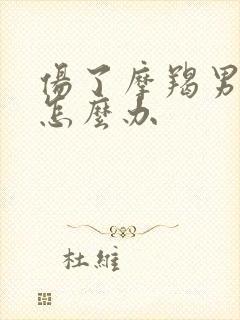 傷了摩羯男
怎麼办
杜維